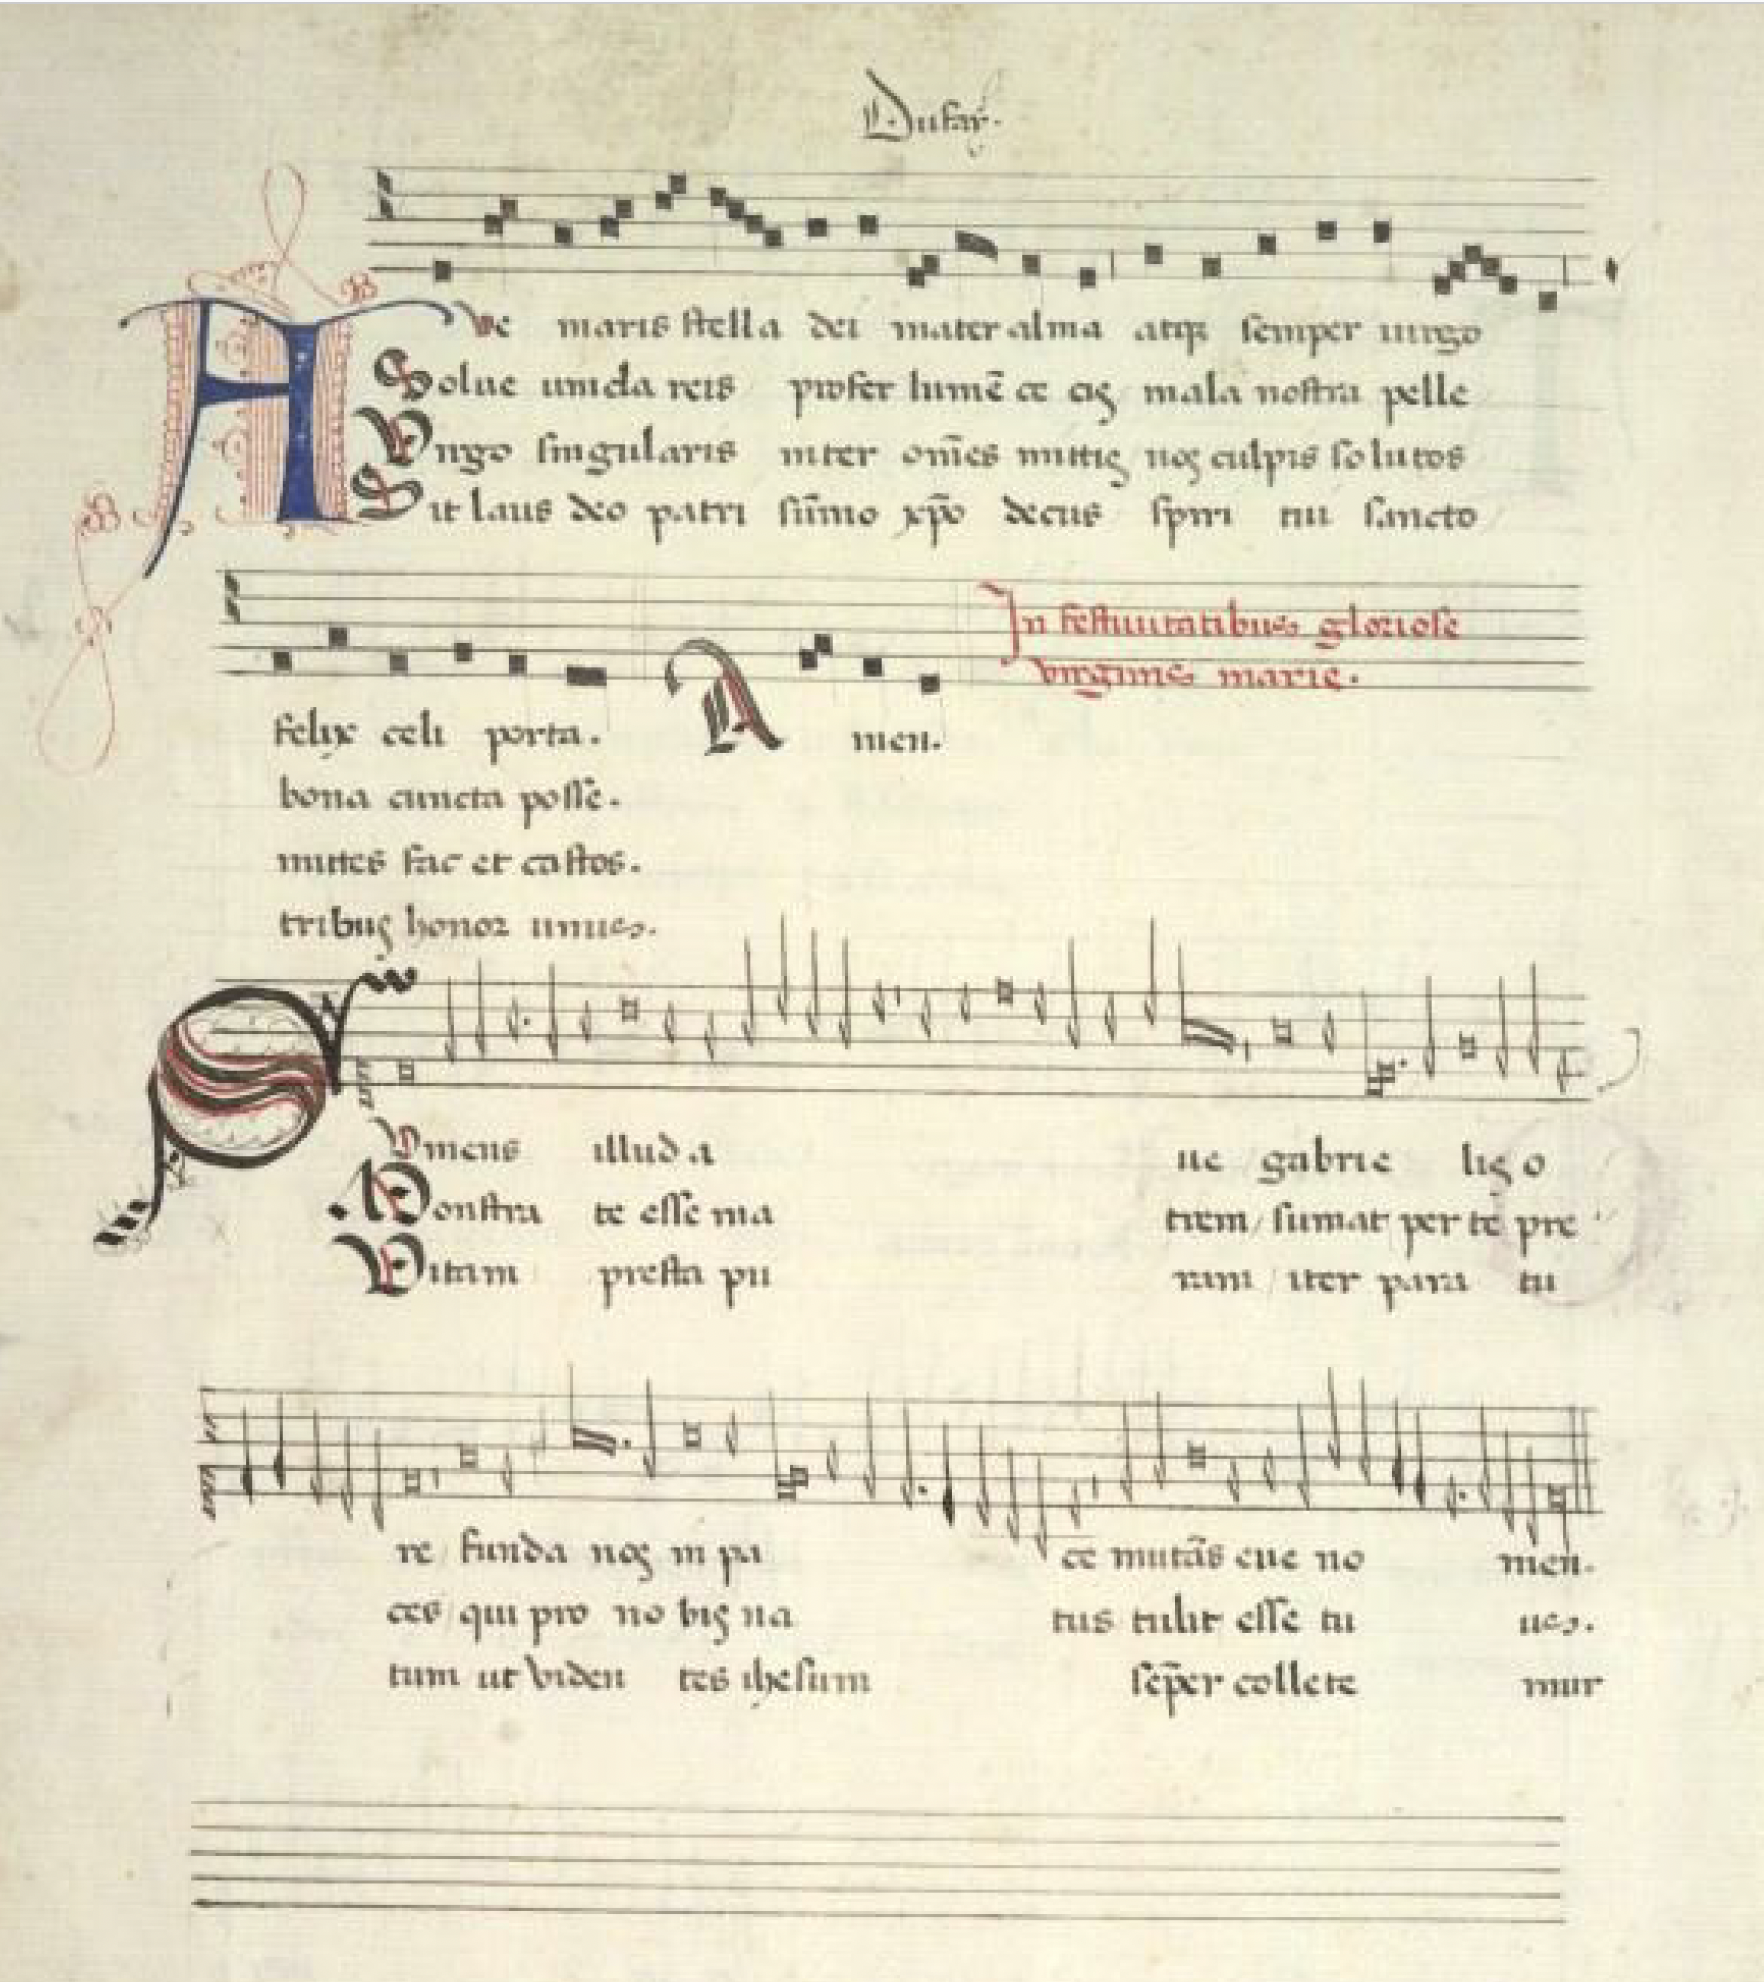 Dufaÿ.
Ave maris stella dei mater alma atqꝫ semper uirgo
Solue uincla reis profer lumē ce cis mala nostra pelle
Virgo singularis inter om̄es mitis nos culpis solutos
Sit laus deo patri sūmo xp̄o decus spiri tui sancto
In festiuitatibus gloriose
virginis marie.
felix celi porta. Amen.
bona cuncta posse.
mittes fac et castos.
tribus honor unus.
Sumens illud a ue gabrie lis o
Monstra te esse ma trem sumat per te pre
Vitam presta pu ram iter para tu
re funda nos in pa ce mutās eue no men.
ces qui pro no bis na tus tulit esse tu us.
tum ut viden tes ihesum sep̄er collete mur